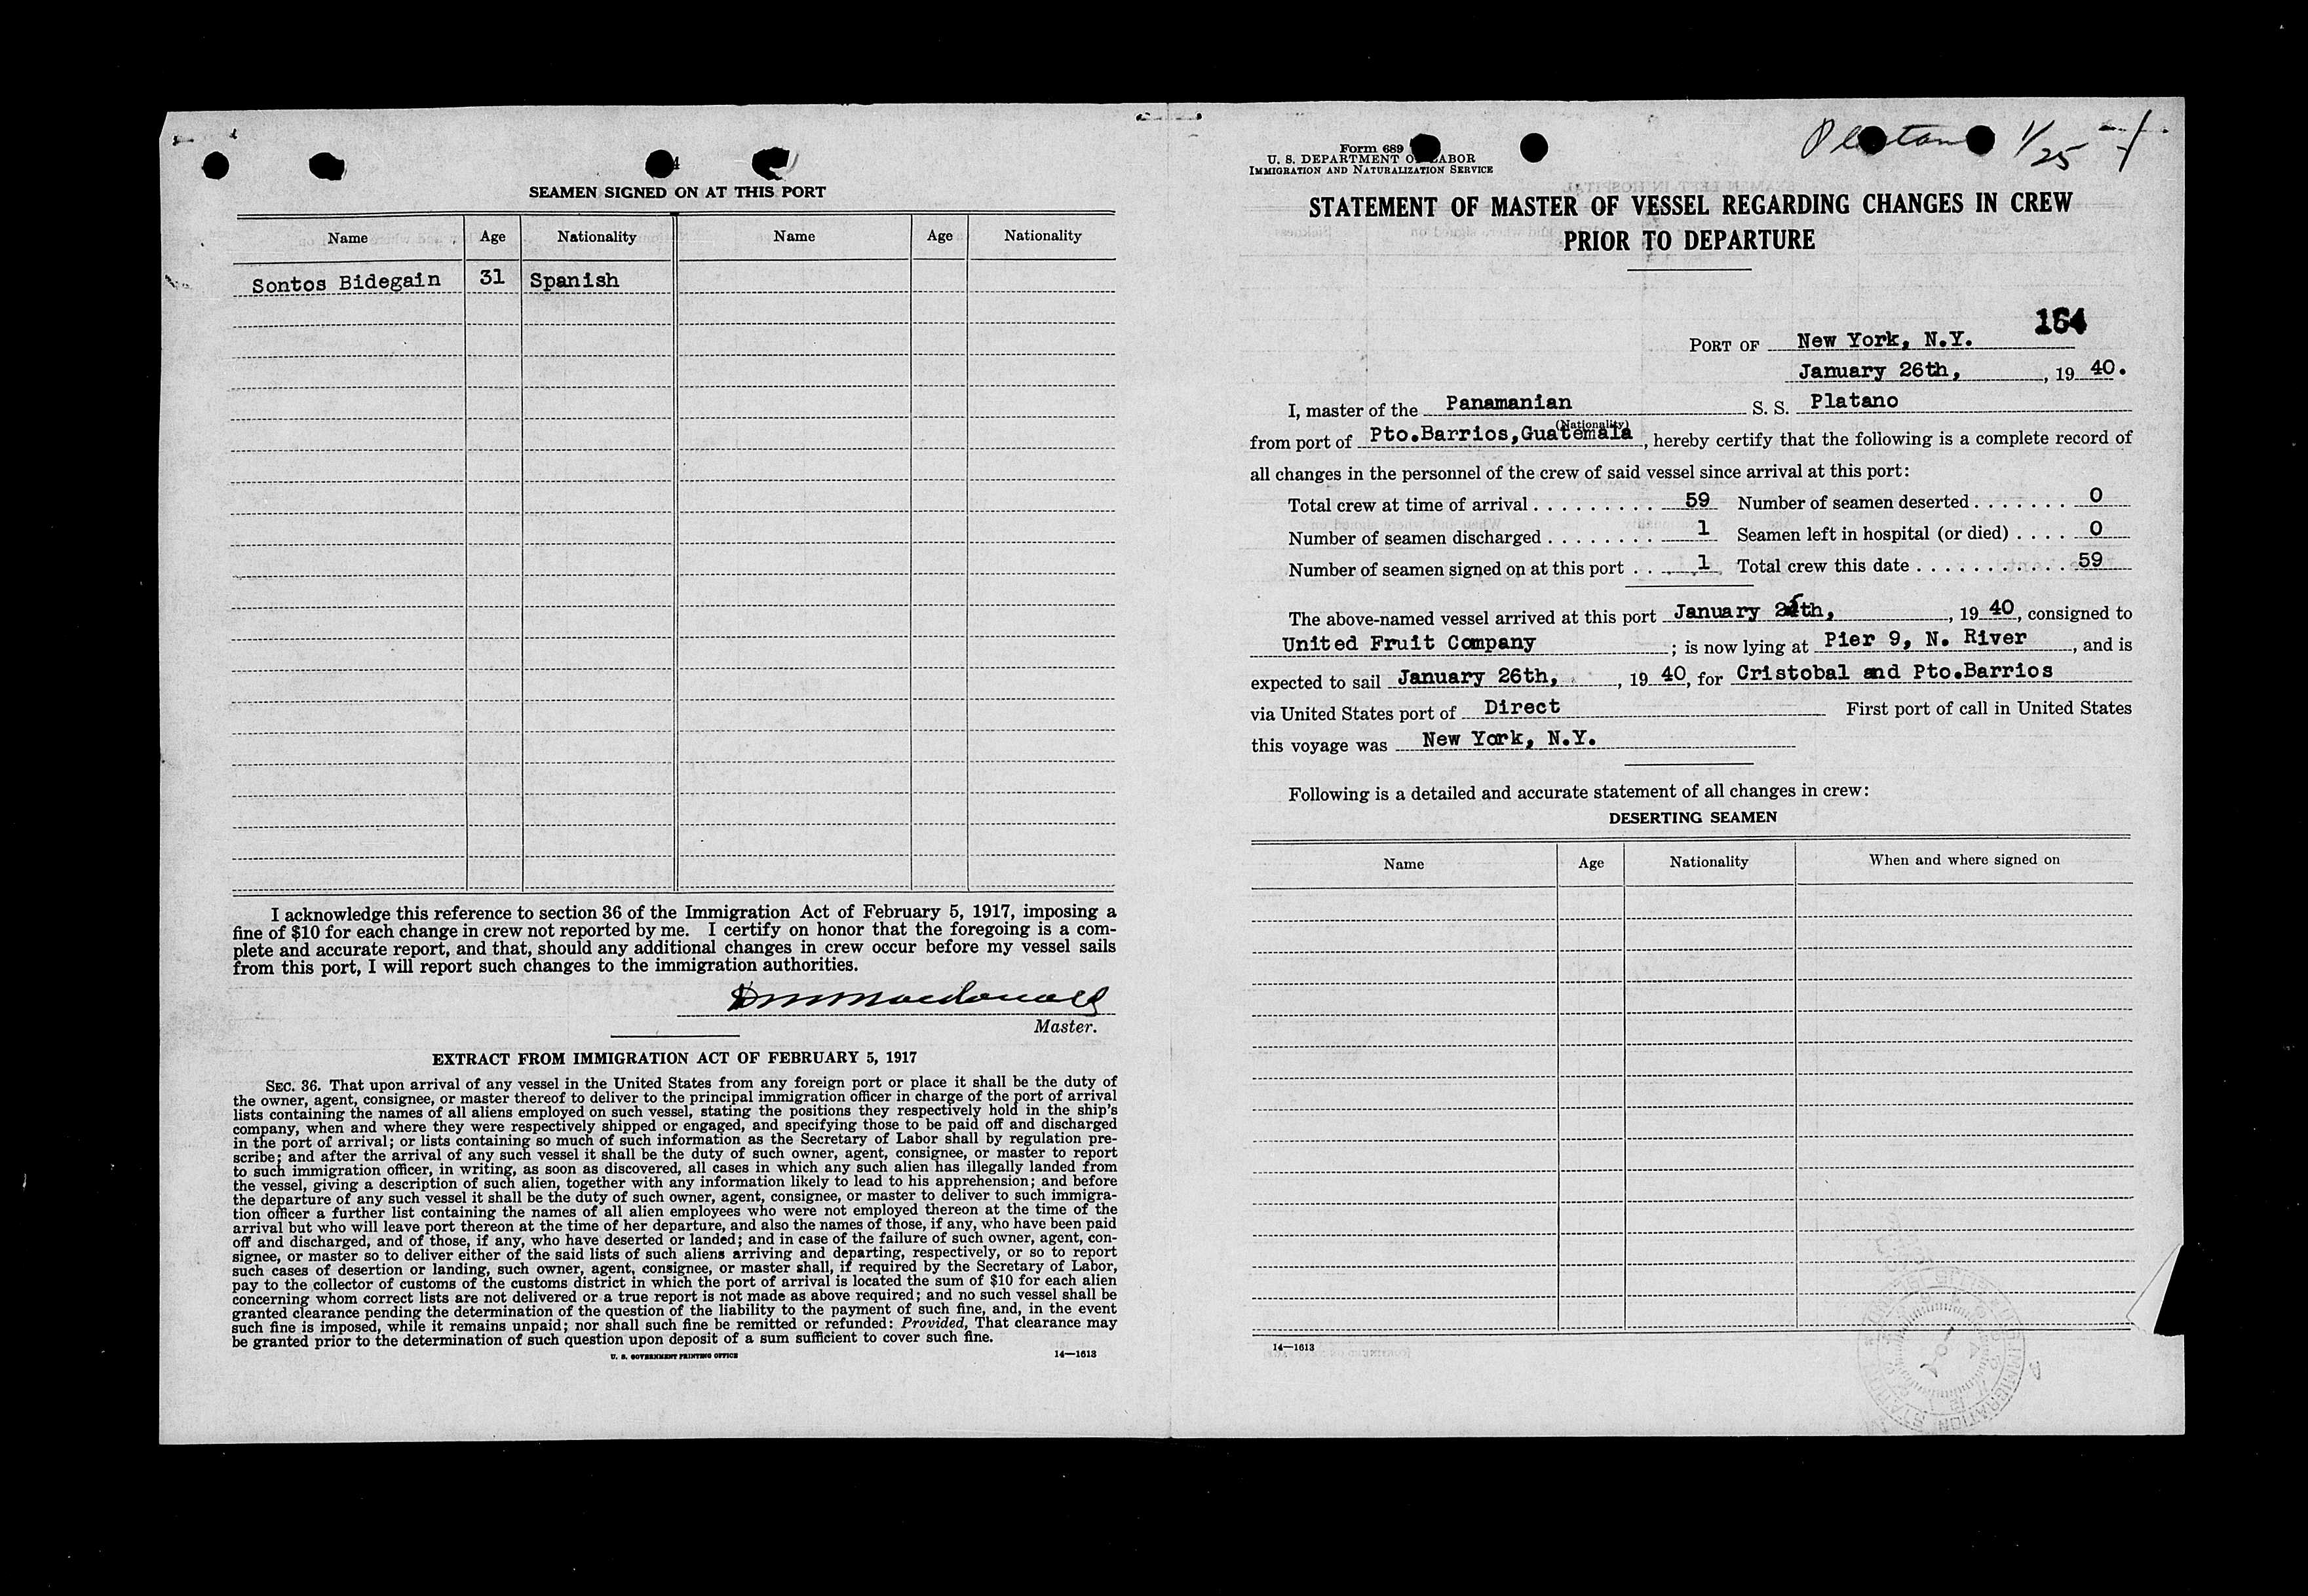 4
SEAMEN SIGNED ON AT THIS PORT
Name Age Nationality Name Age Nationality
Sontos Bidegain 31 Spanish
I acknowledge this reference to section 36 of the Immigration Act of February 5, 1917, imposing a
fine of $10 for each change in crew not reported by me. I certify on honor that the foregoing is a com-
plete and accurate report, and that, should any additional changes in crew occur before my vessel sails
from this port, I will report such changes to the immigration authorities.
Macdonald
Master.
EXTRACT FROM IMMIGRATION ACT OF FEBRUARY 5, 1917
SEC. 36. That upon arrival of any vessel in the United States from any foreign port or place it shall be the duty of
the owner, agent, consignee, or master thereof to deliver to the principal immigration officer in charge of the port of arrival
lists containing the names of all aliens employed on such vessel, stating the positions they respectively hold in the ship's
company, when and where they were respectively shipped or engaged, and specifying those to be paid off and discharged
in the port of arrival; or lists containing so much of such information as the Secretary of Labor shall by regulation pre-
scribe; and after the arrival of any such vessel it shall be the duty of such owner, agent, consignee, or master to report
to such immigration officer, in writing, as soon as discovered, all cases in which any such alien has illegally landed from
the vessel, giving a description of such alien, together with any information likely to lead to his apprehension; and before
the departure of any such vessel it shall be the duty of such owner, agent, consignee, or master to deliver to such immigra-
tion officer a further list containing the names of all alien employees who were not employed thereon at the time of the
arrival but who will leave port thereon at the time of her departure, and also the names of those, if any, who have been paid
off and discharged, and of those, if any, who have deserted or landed; and in case of the failure of such owner, agent, con-
signee, or master so to deliver either of the said lists of such aliens arriving and departing, respectively, or so to report
such cases of desertion or landing, such owner, agent, consignee, or master shall, if required by the Secretary of Labor,
pay to the collector of customs of the customs district in which the port of arrival is located the sum of $10 for each alien
concerning whom correct lists are not delivered or a true report is not made as above required; and no such vessel shall be
granted clearance pending the determination of the question of the liability to the payment of such fine, and, in the event
such fine is imposed, while it remains unpaid; nor shall such fine be remitted or refunded: Provided, That clearance may
be granted prior to the determination of such question upon deposit of a sum sufficient to cover such fine.
U. S. GOVERNMENT PRINTING OFFICE 14—1613
Platano 1/25
Form 689
U. S. DEPARTMENT OF LABOR
IMMIGRATION AND NATURALIZATION SERVICE
STATEMENT OF MASTER OF VESSEL REGARDING CHANGES IN CREW
PRIOR TO DEPARTURE
164
PORT OF New York, N.Y.
January 26th, , 19 40.
I, master of the Panamanian S. S. Platano
(Nationality)
from port of Pto.Barrios,Guatemala , hereby certify that the following is a complete record of
all changes in the personnel of the crew of said vessel since arrival at this port:
Total crew at time of arrival . . . . . . . . . 59 Number of seamen deserted . . . . . . . 0
Number of seamen discharged . . . . . . . . 1 Seamen left in hospital (or died) . . . . 0
Number of seamen signed on at this port . . . 1 Total crew this date . . . . . . . . . . . 59
The above-named vessel arrived at this port January 25th, , 19 40, consigned to
United Fruit Company ; is now lying at Pier 9, N. River , and is
expected to sail January 26th, , 19 40, for Cristobal and Pto.Barrios
via United States port of Direct First port of call in United States
this voyage was New York, N.Y.
Following is a detailed and accurate statement of all changes in crew:
DESERTING SEAMEN
Name Age Nationality When and where signed on
14—1613